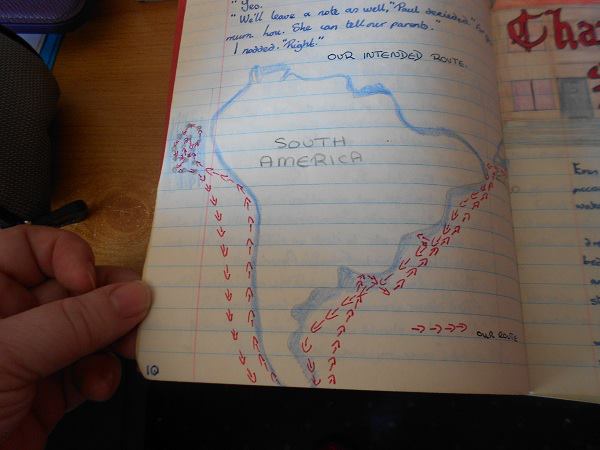 "Yes.
"We'll leave a note as well," Paul decided."
mum how. She can tell our parents."
I nodded. "Right."
OUR INTENDED ROUTE.
SOUTH
AMERICA
OUR ROUTE
10
Cha